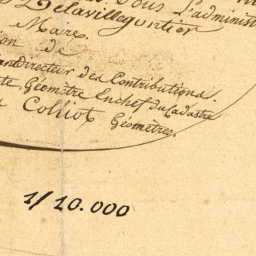 Sous l'administ
Delavillegontier
Mare.
ion de
Directeur des Contributions.
te, Géomètre Enchef du Cadastre
Colliot Géomètres.
1/10.000